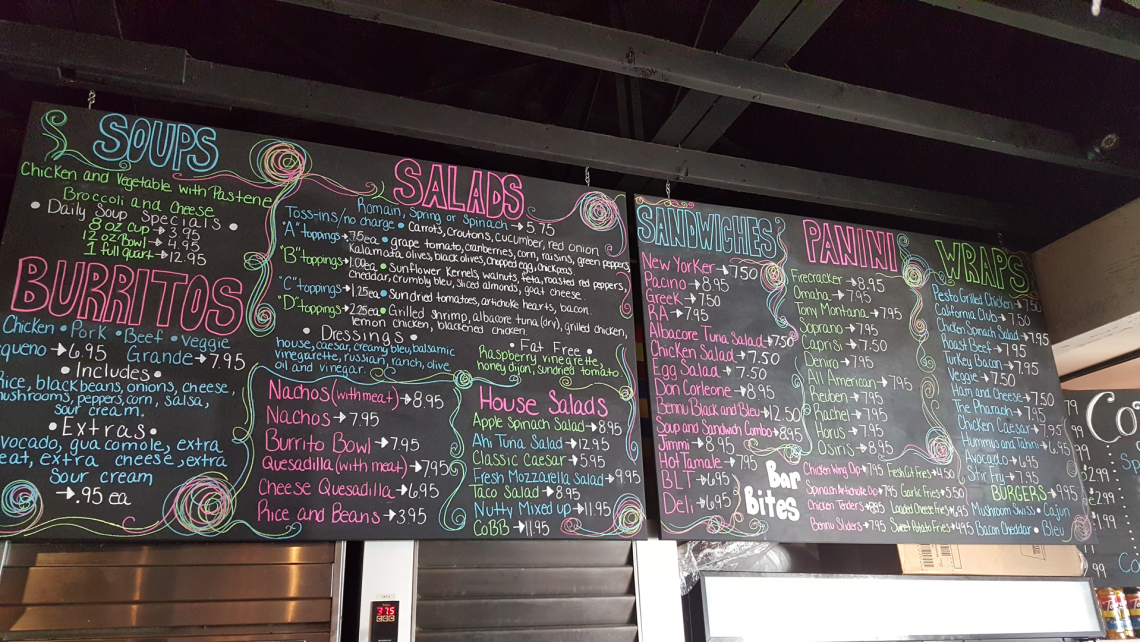 SOUPS
Chicken and Vegetable with Pastene
Broccoli and Cheese
• Daily Soup Specials •
8 oz cup → 3.95
12 oz/bowl → 4.95
1 full quart → 12.95
BURRITOS
Chicken • Pork • Beef • Veggie
queno → 6.95 Grande → 7.95
• Includes •
Rice, blackbeans, onions, cheese,
mushrooms, peppers, corn, salsa,
sour cream.
• Extras •
avocado, guacamole, extra
meat, extra cheese, extra
Sour cream
→ .95 ea
SALADS
Romain, Spring or Spinach → 5.75
Toss-ins/no charge • Carrots, Croutons, cucumber, red onion
"A" toppings → .75ea • grape tomato, cranberries, corn, raisins, green peppers,
Kalamata olives, black olives, chopped egg, chickpeas
"B" toppings → 1.00ea • Sunflower Kernels, walnuts, feta, roasted red peppers,
cheddar, crumbly bleu, sliced almonds, goat cheese
"C" toppings → 1.25ea • Sundried tomatoes, artichoke hearts, bacon.
"D" toppings → 2.25ea • Grilled shrimp, albacore tuna (dry), grilled chicken,
lemon chicken, blackened chicken
• Dressings •
house, caesar, creamy bleu, balsamic
vinegarette, russian, ranch, olive
oil and vinegar.
• Fat Free •
Raspberry vinegarette,
honey dijon, sundried tomato
Nachos (with meat) → 8.95
Nachos → 7.95
Burrito Bowl → 7.95
Quesadilla (with meat) → 7.95
Cheese Quesadilla → 6.95
Rice and Beans → 3.95
House Salads
Apple Spinach Salad → 8.95
Ahi Tuna Salad → 12.95
Classic Caesar → 5.95
Fresh Mozzarella Salad → 9.95
Taco Salad → 8.95
Nutty Mixed up → 11.95
CoBB → 11.95
SANDWICHES
New Yorker → 7.50
Pacino → 8.95
Greek → 7.50
RA → 7.95
Albacore Tuna Salad → 7.50
Chicken Salad → 7.50
Egg Salad → 7.50
Don Corleone → 8.95
Bennu Black and Bleu → 12.50
Soup and Sandwich Combo → 8.95
Jimmi → 8.95
Hot Tamale → 7.95
BLT → 6.95
Deli → 6.95
PANINI
Firecracker → 8.95
Omaha → 7.95
Tony Montana → 7.95
Soprano → 7.95
Caprisi → 7.50
Deniro → 7.95
All American → 7.95
Reuben → 7.95
Rachel → 7.95
Horus → 7.95
Osiris → 8.95
WRAPS
Pesto Grilled Chicken → 7.50
California Club → 7.50
Chicken Spinach Salad → 7.95
Roast Beef → 7.95
Turkey Bacon → 7.95
Veggie → 7.50
Ham and Cheese → 7.50
The Pharaoh → 7.95
Chicken Caesar → 7.95
Hummus and Tahini → 6.95
Avocado → 6.95
Stir Fry → 7.95
BURGERS → 9.95
Mushroom Swiss • Cajun
Bacon Cheddar • Bleu
Bar
Bites
Chicken Wing Dip → 7.95
Spinach Artichoke Dip → 7.95
Chicken Tenders → 8.95
Bennu Sliders → 7.95
Fresh Cut Fries → 4.50
Garlic Fries → 5.50
Loaded Cheese Fries → 6.95
Sweet Potato Fries → 4.95
Co
Sp
2.99
2.99
1.99
Co
375